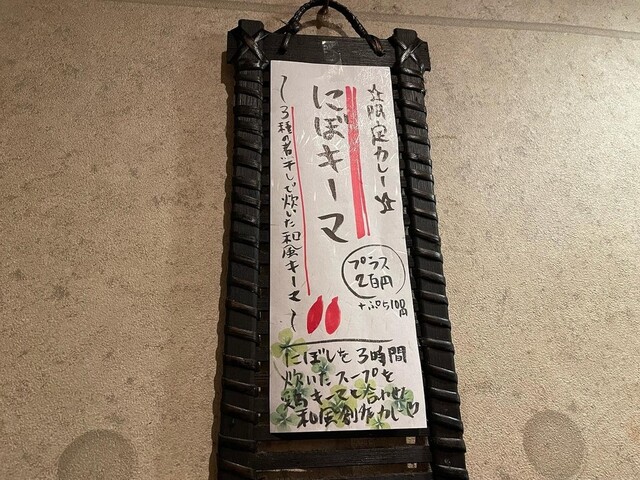 ☆限定カレー☆
にぼキーマ
〜3種の煮干しで炊いた和風キーマ〜
プラス
2百円
にぼしを3時間
炊いたスープを
鶏キーマと合わせ
和風創作カレー♡